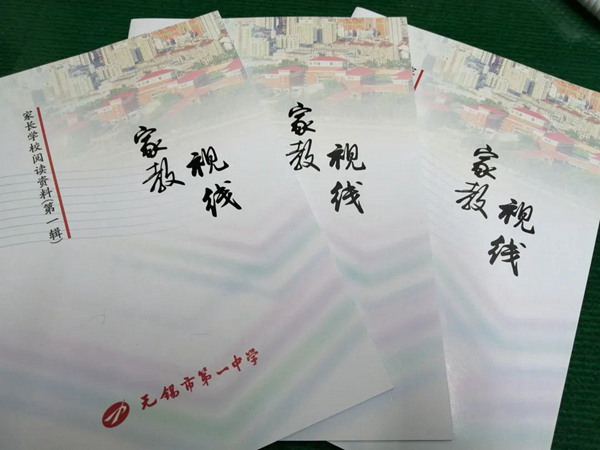 家长学校阅读资料(第一辑)
家教
视线
无锡市第一中学
家教
视线
家教
视线